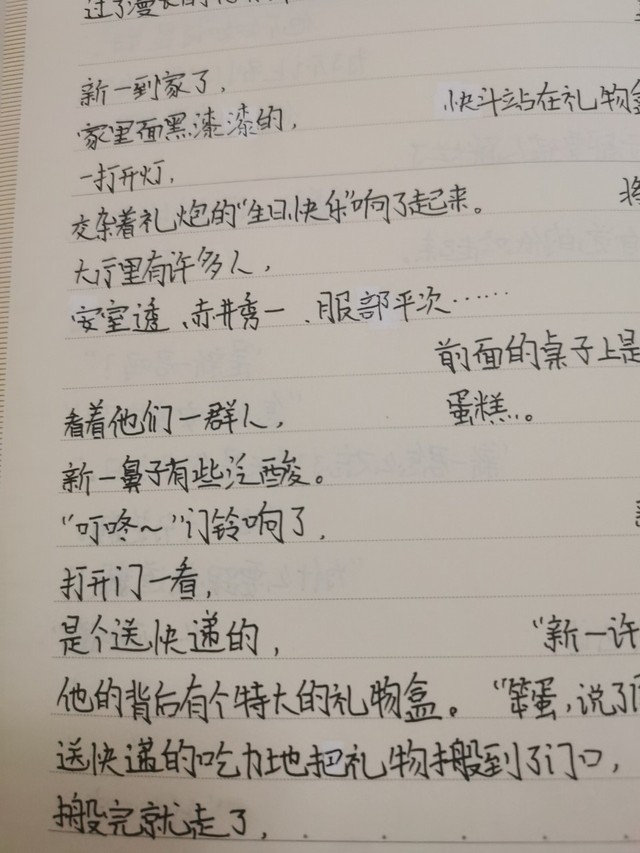 过了漫长的
新一到家了，
家里面黑漆漆的，
一打开灯，
交杂着礼炮的“生日快乐”响了起来。
大厅里有许多人，
安室透、赤井秀一、服部平次……
看着他们一群人，
新一鼻子有些泛酸。
“叮咚～”门铃响了，
打开门一看，
是个送快递的，
他的背后有个特大的礼物盒。
送快递的吃力地把礼物搬到了门口，
搬完就走了，
快斗站在礼物盒
将
前面的桌子上是
蛋糕…。
“新一许
“笨蛋，说了